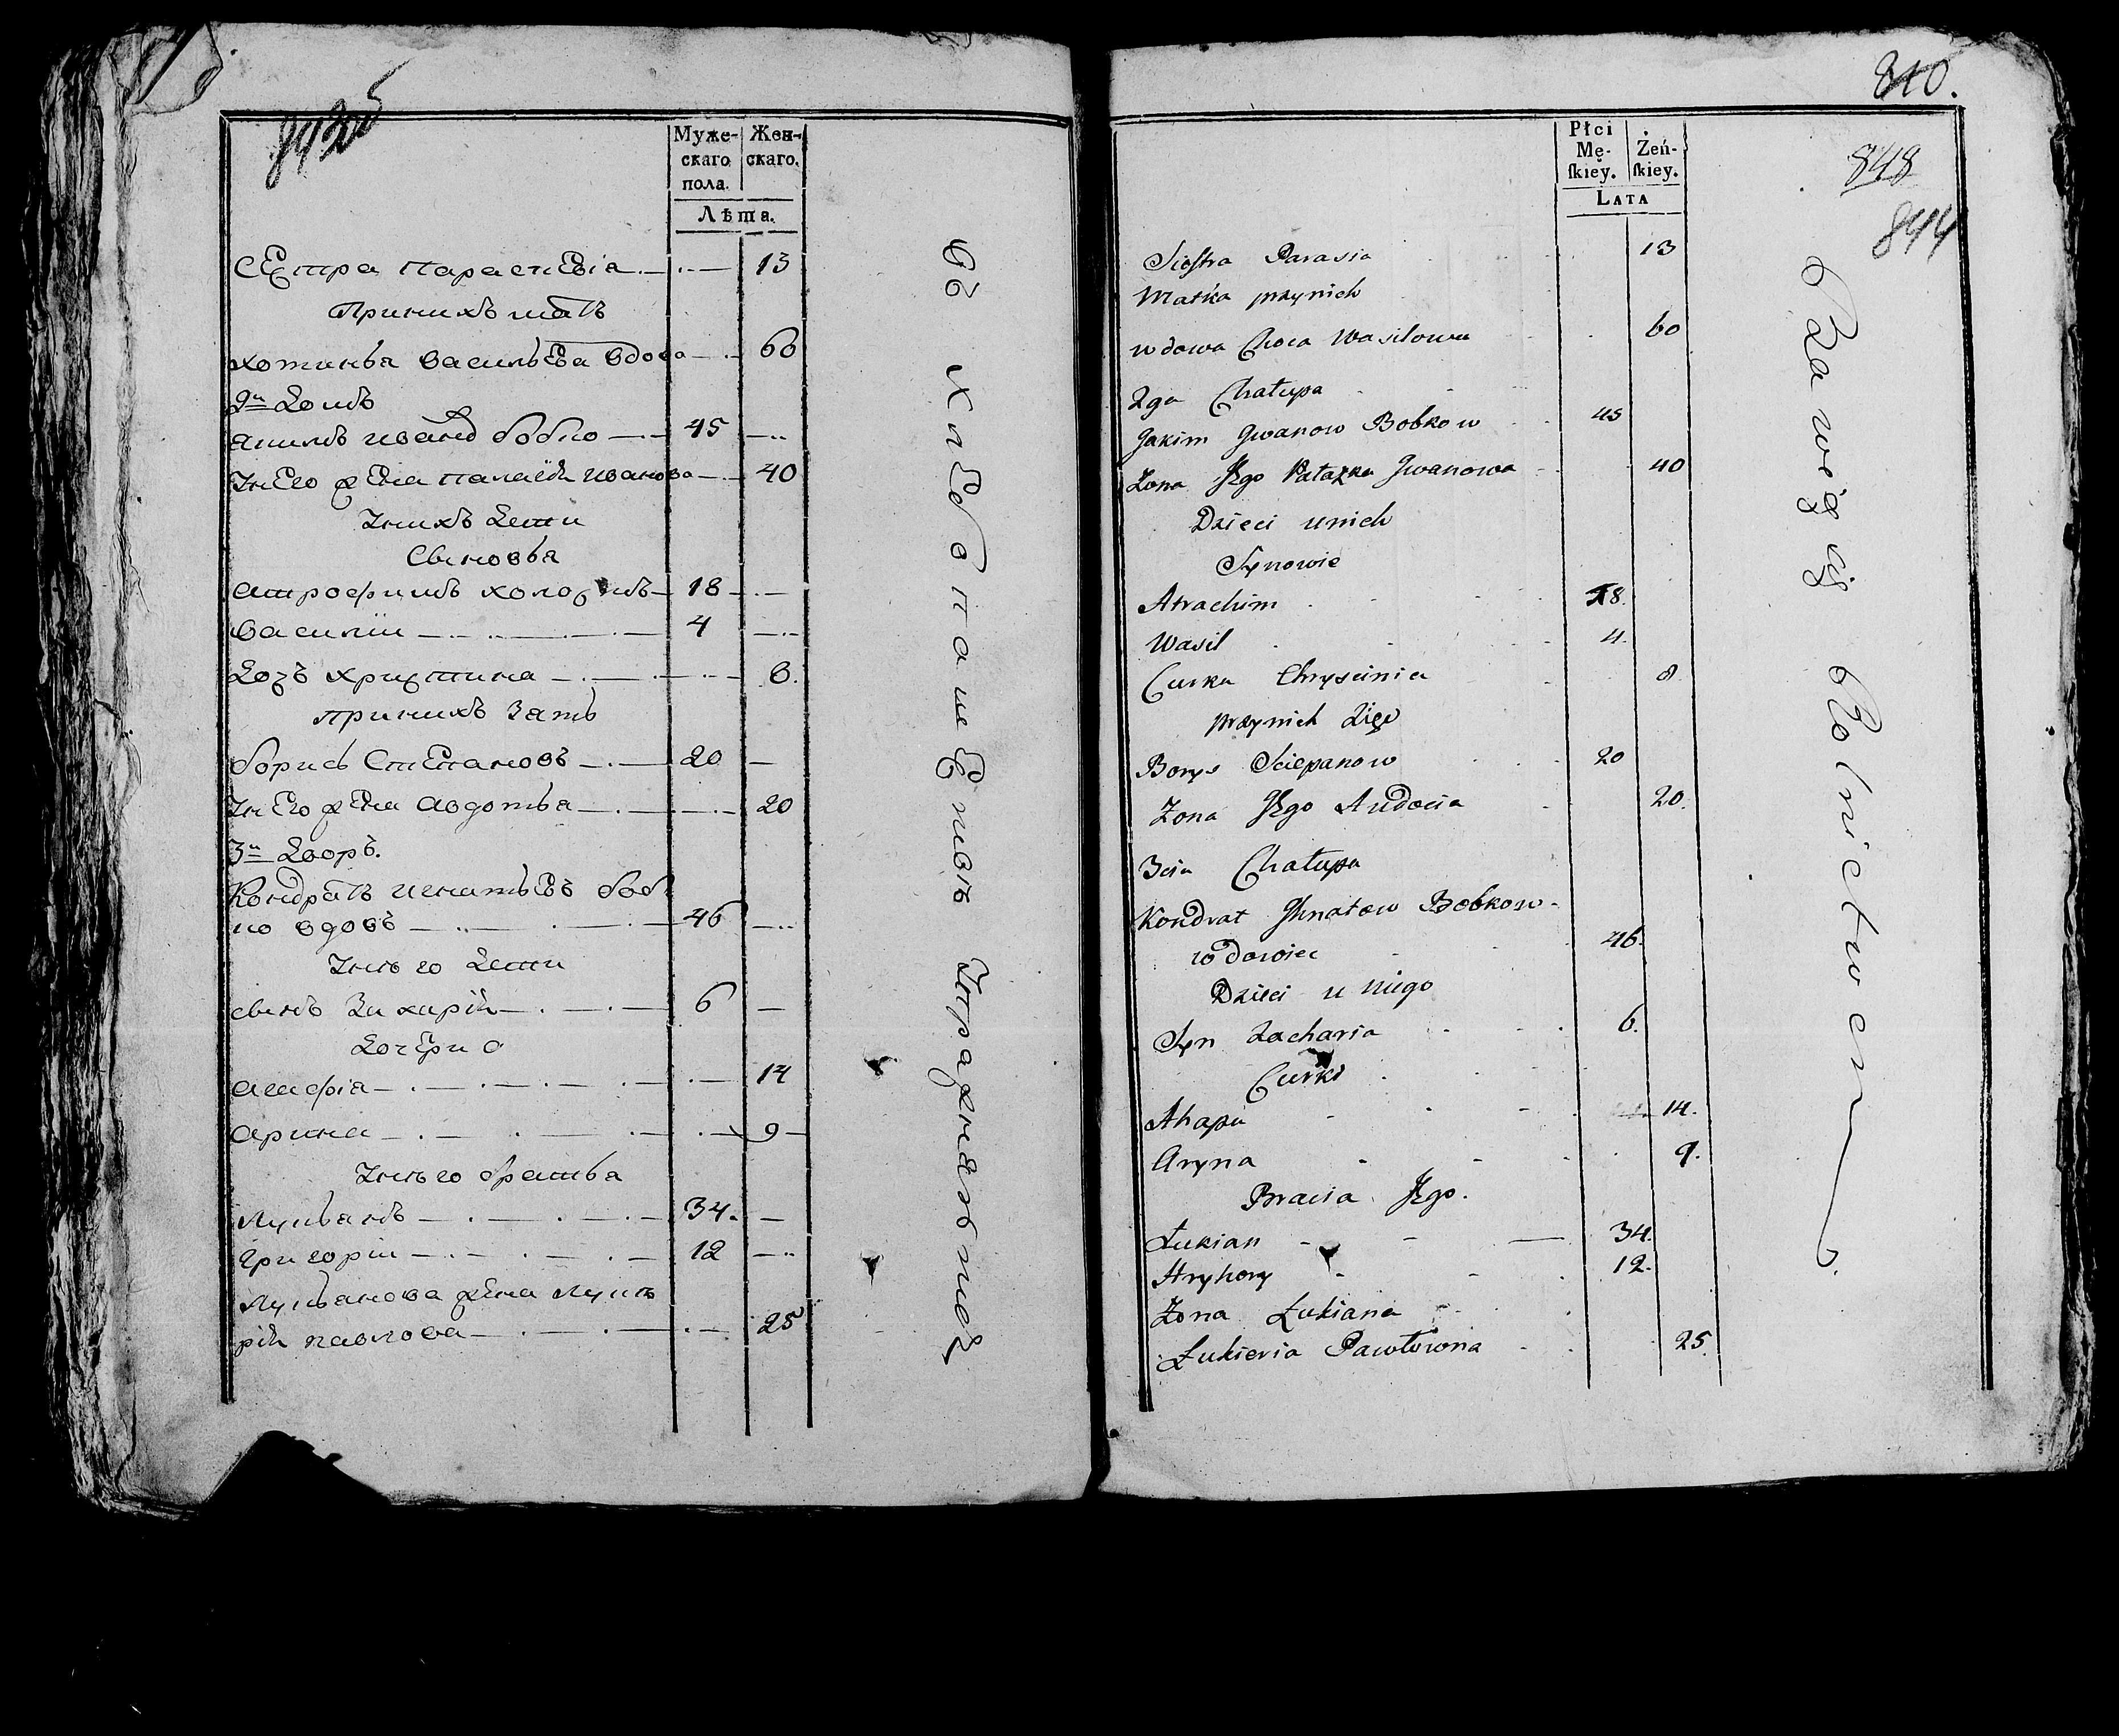 843об
Муже-
скаго
пола.
Жен-
скаго.
Лѣта.
Сестра Параскевiа 13
При нихъ мать
Хотинья Васильева вдова 60
2й домъ
Якимъ Ивановъ Бобко 45
У него жена Палагѣя Иванова 40
У нихъ дети
Сыновья
Атрофимъ холостъ 18
Василiй 4
Дочь Христина 8.
При нихъ зять
Борисъ Степановъ 20
У него жена Авдотья 20
3й дворъ.
Кондратъ Игнатьевъ Боб-
ко вдовъ 46
У него дети
Сынъ Захарiй 6
Дочери
Агафiя 14
Арина 9
У него братья
Лукьянъ 34.
Григорiй 12
Лукьянова жена Луке
рiя Павлова 25
Въ хлебопашествѣ упражняются
810.
848
844
Płci
Mę-
ſkiey.
Żeń-
ſkiey.
LATA
Siostra Parasia 13
Matka przy nich
wdowa Chocia Wasilowa 60
2ga Chałupa
Jakim Jwanow Bobkow 45
Zona Jego Pałażka Jwanowa 40
Dzieci u nich
Synowie
Atrachim 18.
Wasil 4.
Curka Chryscinia 8
przy nich Zięć
Borys Sciepanow 20
Zona Jego Audocia 20.
3cia Chałupa
Kondrat Jhnatow Bobkow
wdowiec 46.
Dzieci u niego
Syn Zacharia 6.
Curki
Ahapa 14.
Aryna 9.
Bracia Jego.
Łukian 34.
Hryhory 12.
Zona Łukiana
Łukieria Pawłowna 25.
Bawią się Rolnictwem